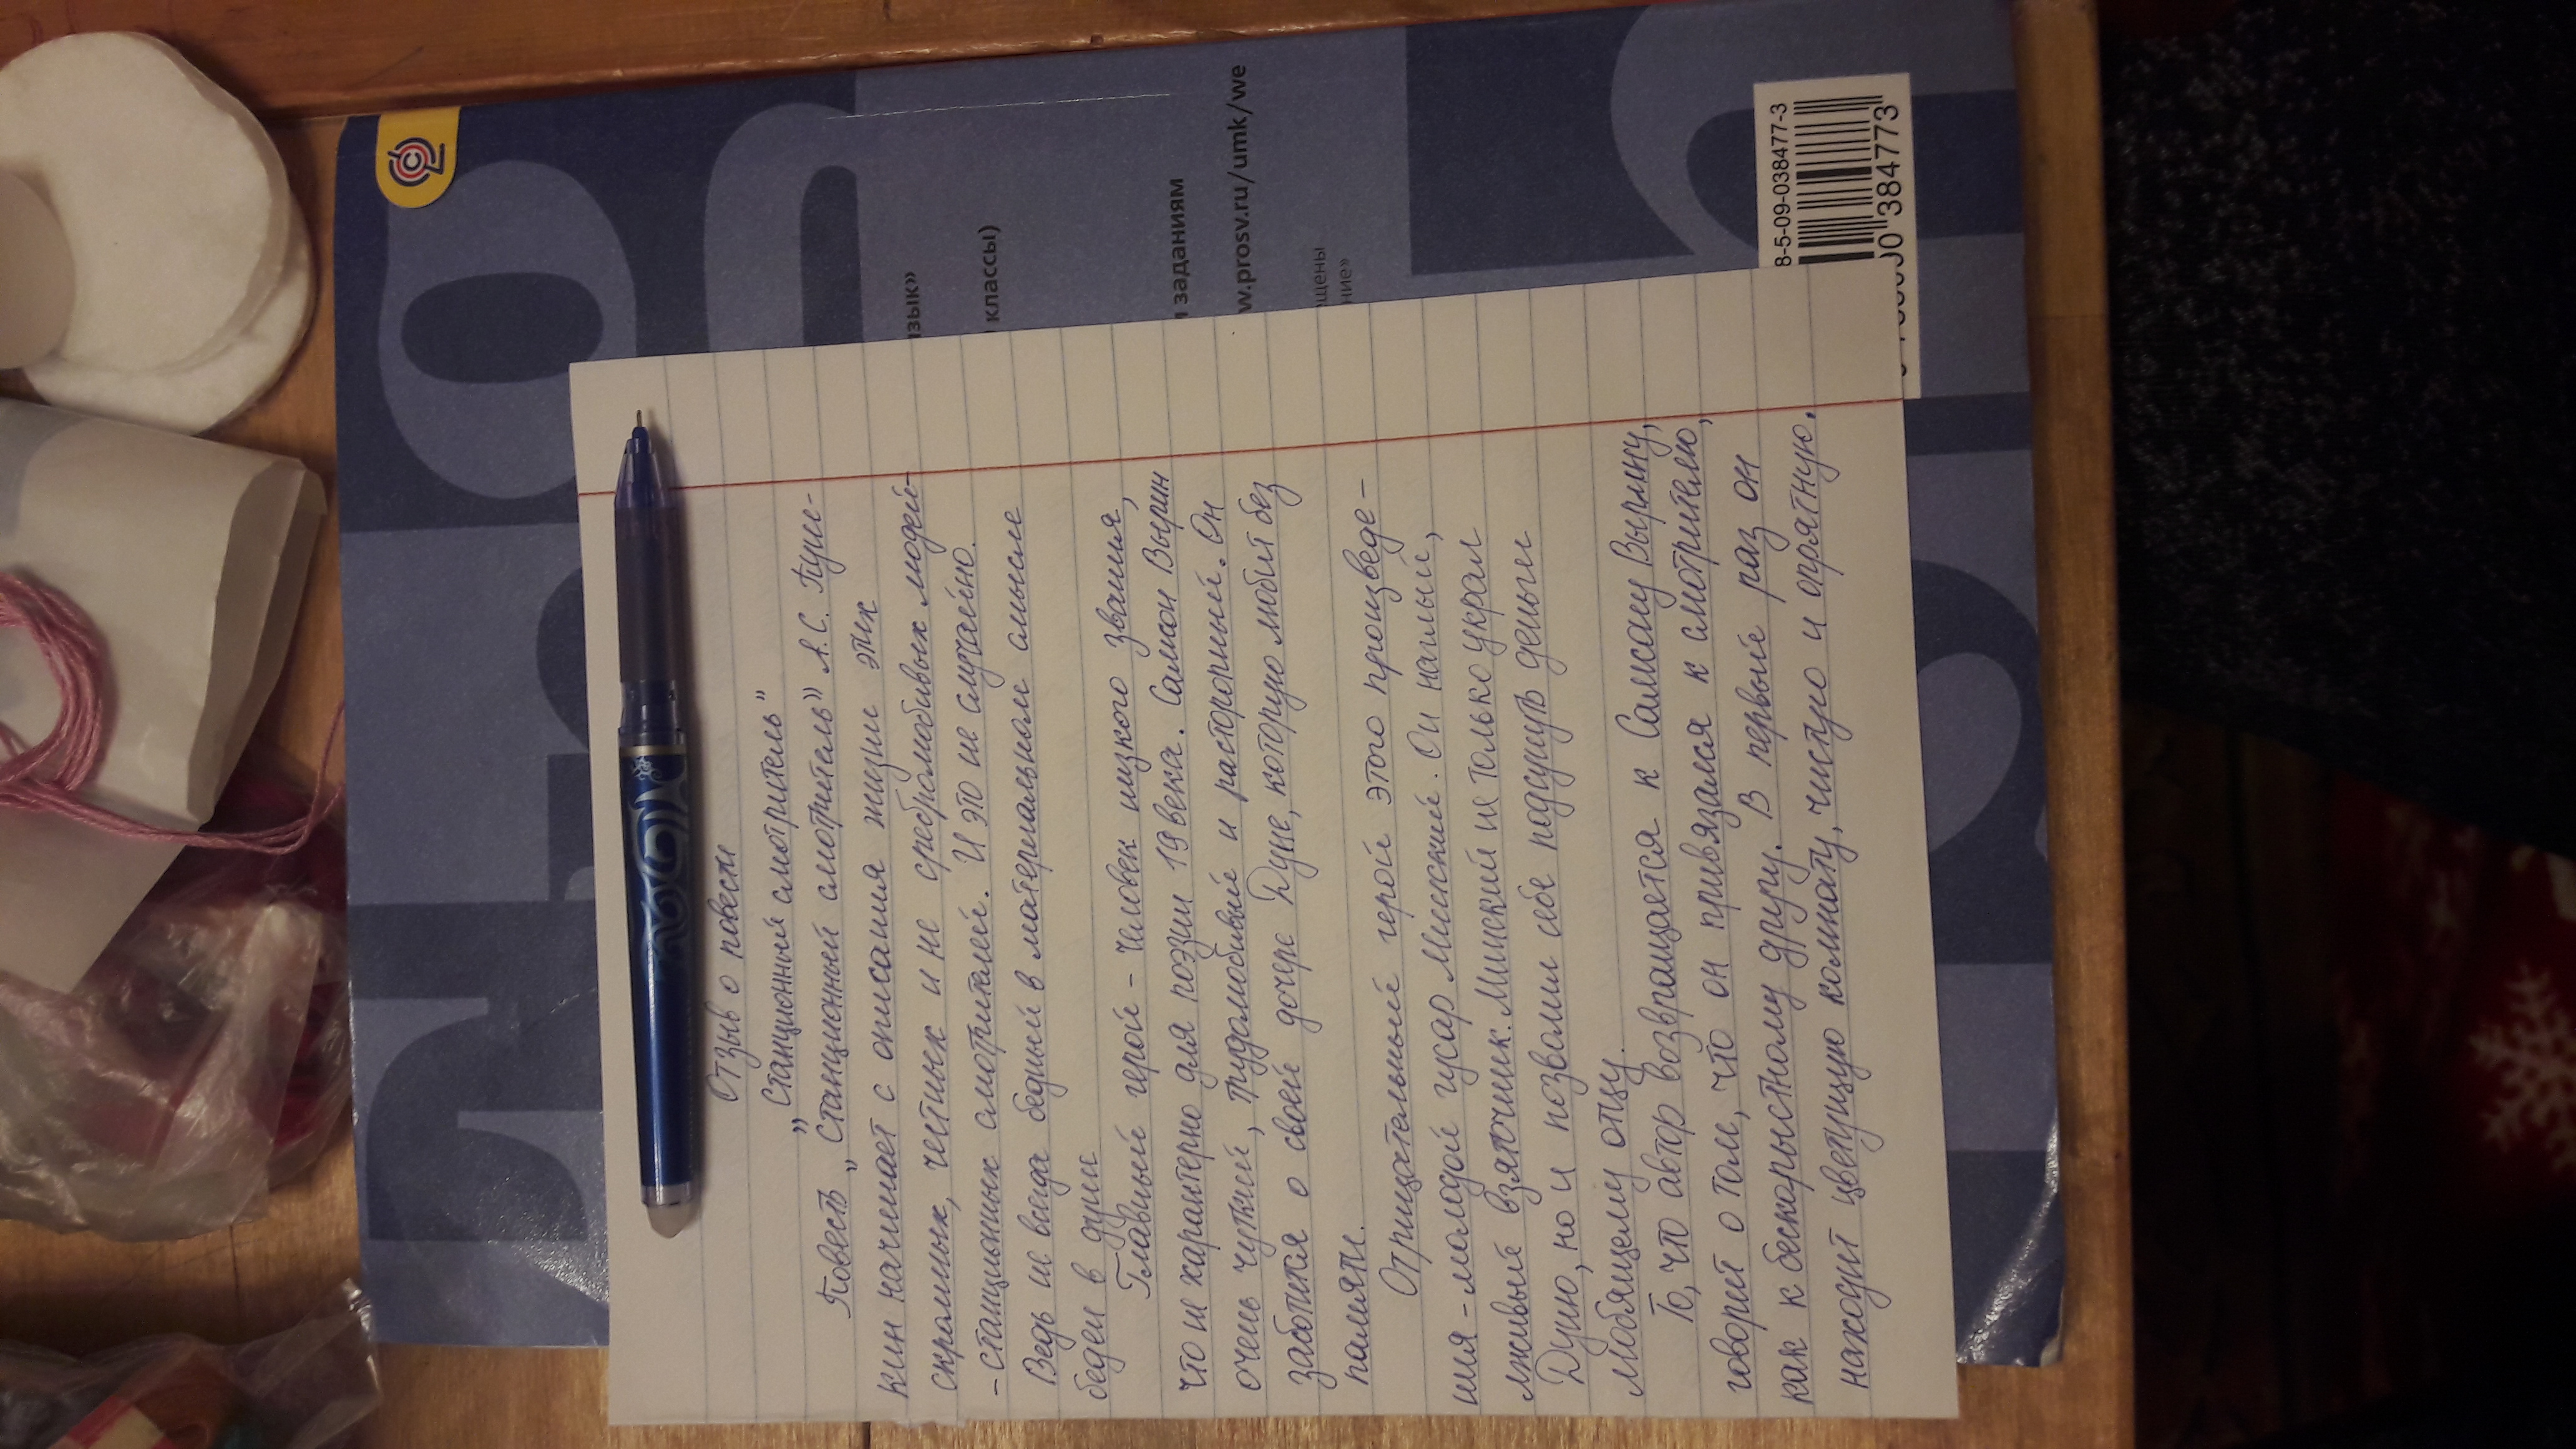 Отзыв о повести
„Станционный смотритель”
Повесть „Станционный смотритель” А.С. Пуш-
кин начинает с описания жизни этих
скромных, честных и не сребролюбивых людей-
-станционных смотрителей. И это не случайно.
Ведь не всегда бедный в материальном смысле
беден в душе
Главный герой - человек низкого звания,
что не характерно для поэзии 19 века. Самсон Вырин
очень чуткий, трудолюбивый и расторопный. Он
заботится о своей дочере Дуне, которую любит без
памяти.
Отрицательный герой этого произведе-
ния - молодой гусар Минский. Он наглый,
лживый взяточник. Минский не только украл
Дуню, но и позволил себе подсунуть деньги
любящему отцу.
То, что автор возвращается к Самсону Вырину,
говорит о том, что он привязался к смотрителю,
как к бескорыстному другу. В первый раз он
находит цветущую комнату, чистую и опрятную.
язык»
классы)
и заданиям
w.prosv.ru/umk/we
щены
ние»
8-5-09-038477-3
384773